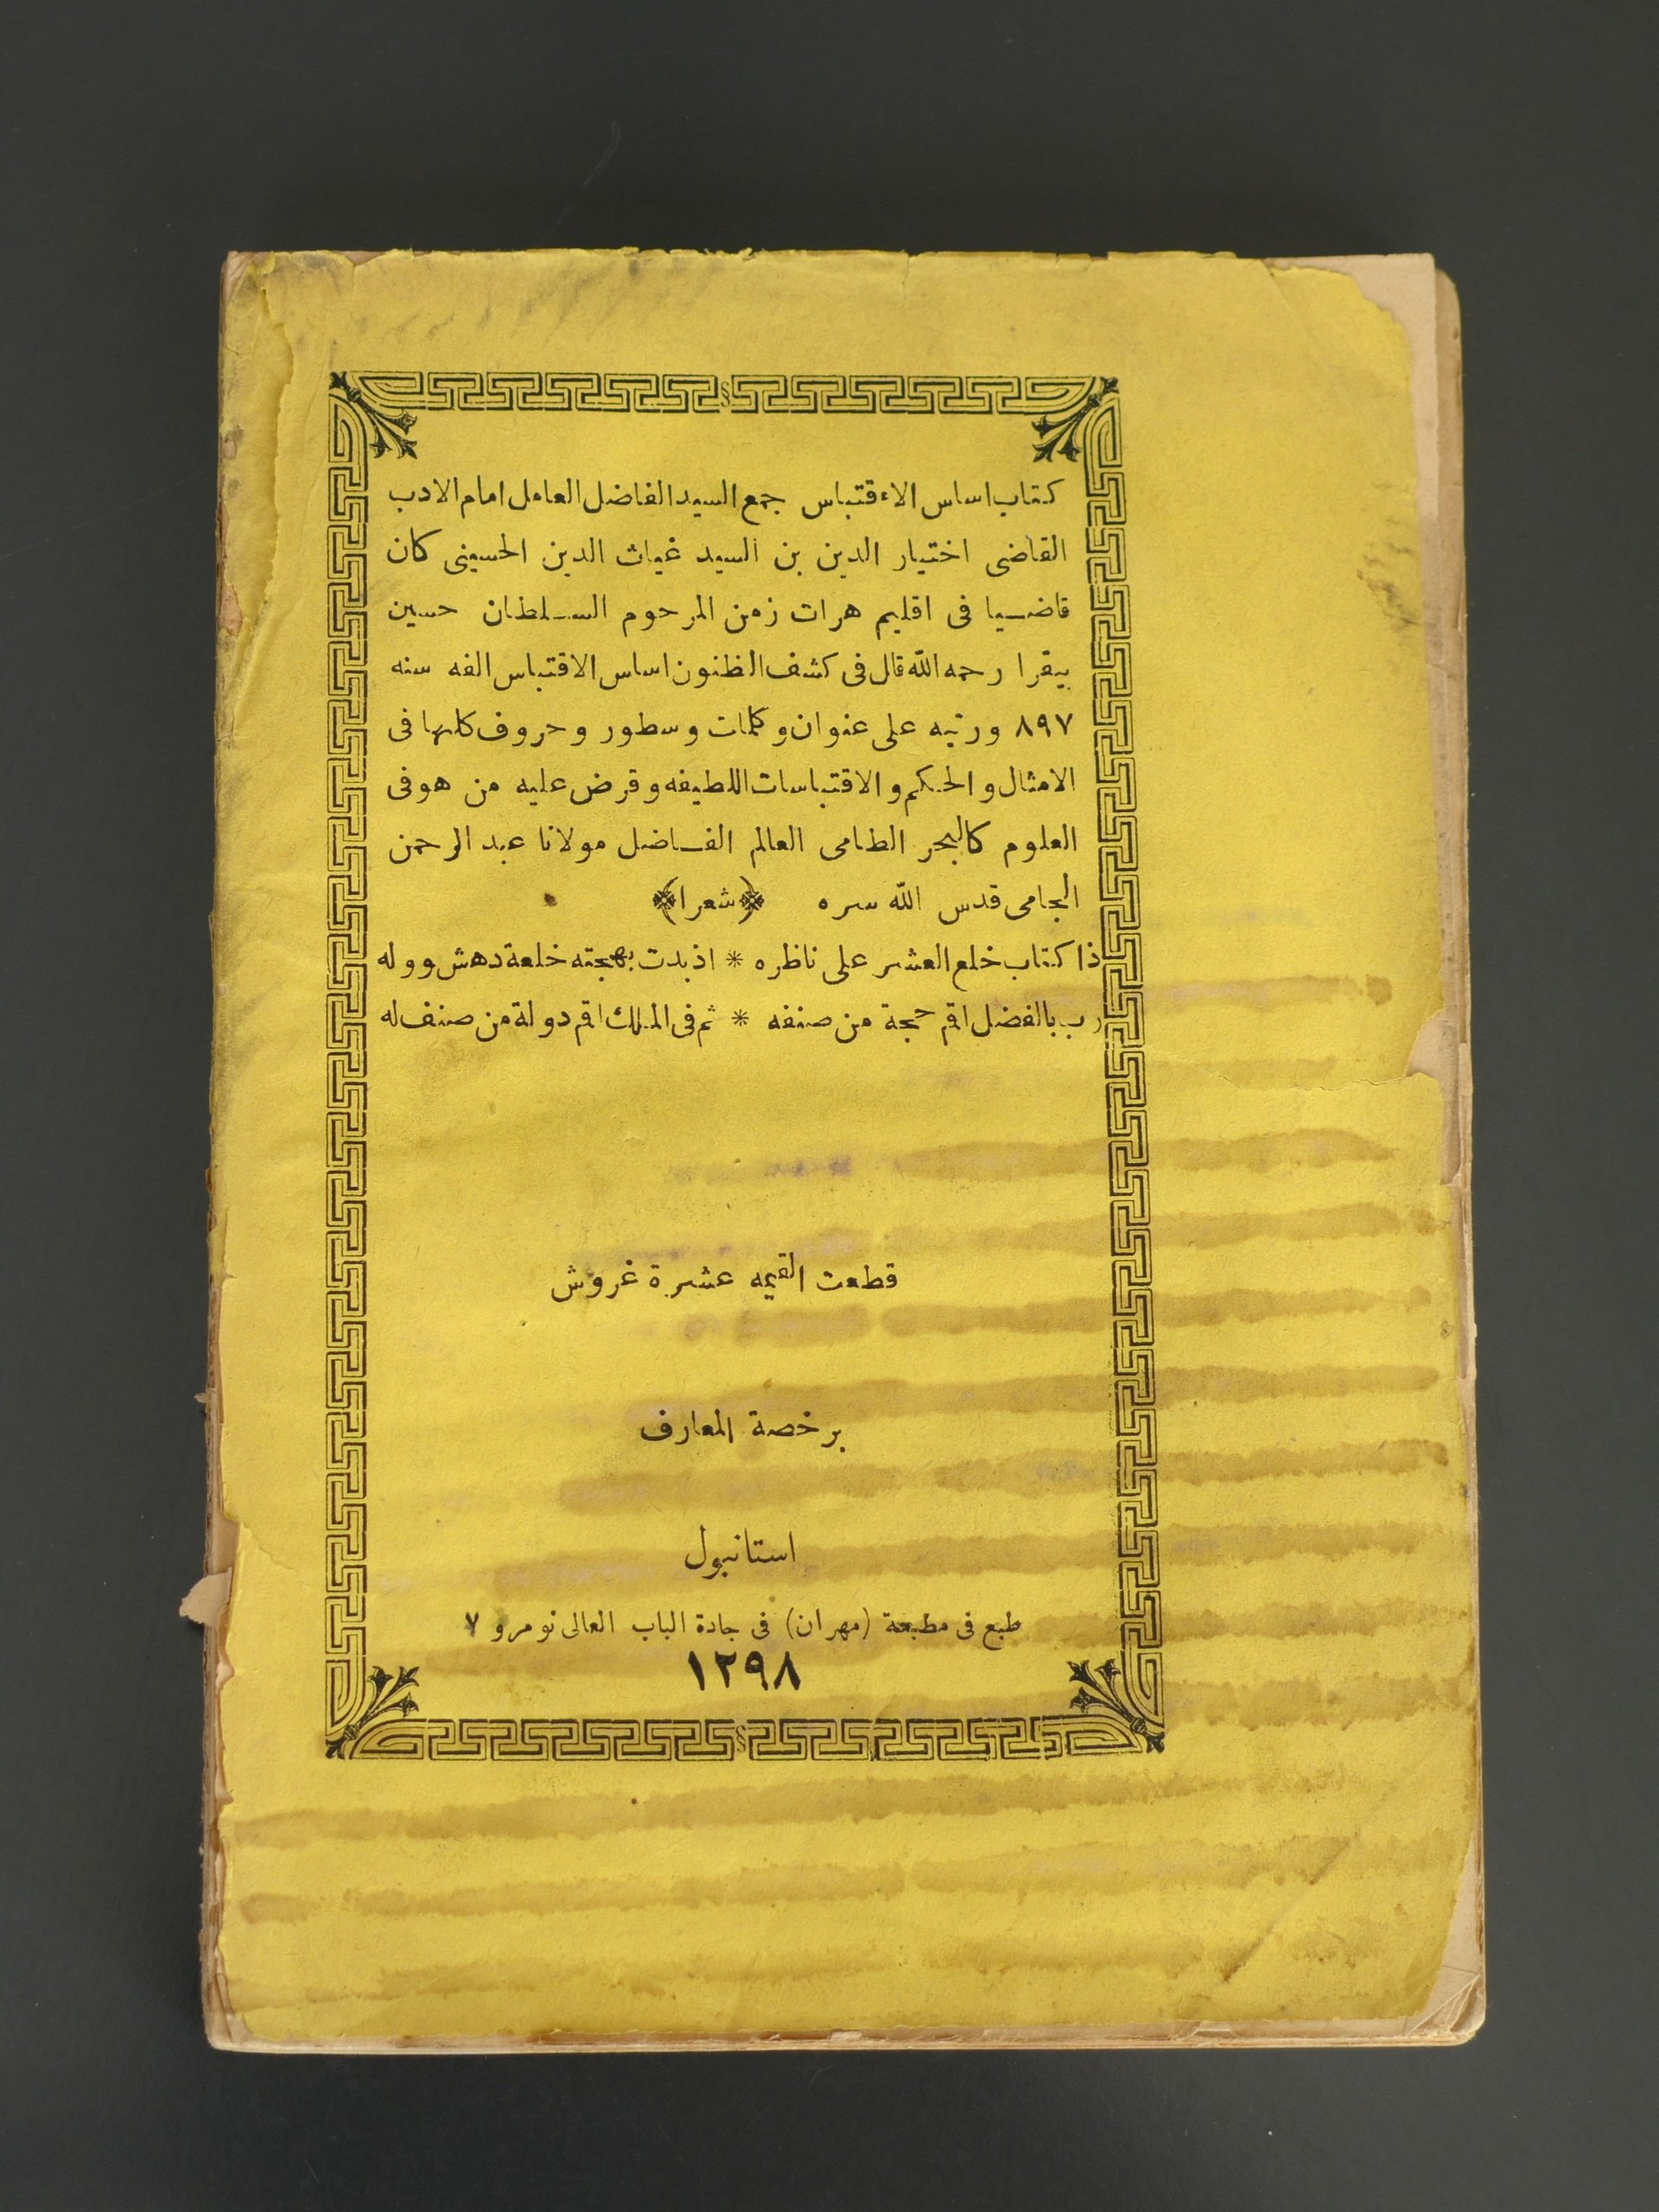 كتاب اساس الاءقتباس جمع السيد الفاضل العامل امام الادب
القاضى اختيار الدين بن السيد غياث الدين الحسينى كان
قاضيا فى اقليم هرات زمن المرحوم السلطان حسين
بيقرا رحمه الله قال فى كشف الظنون اساس الاقتباس الفه سنه
٨٩٧ ورتبه على عنوان وكلمات وسطور وحروف كلها فى
الامثال والحكم والاقتباسات اللطيفه وقرض عليه من هو فى
العلوم كالبحر الطامى العالم الفاضل مولانا عبد الرحمن
الجامى قدس الله سره ﴿شعرا﴾
ذا كتاب خلع العشر على ناظره * اذ بدت بهجته خلعة دهش ووله
رب بالفضل اقم حجة من صنفه * ثم فى الملك اقم دولة من صنف له
قطعت القيمه عشرة غروش
برخصة المعارف
استانبول
طبع فى مطبعة (مهران) فى جادة الباب العالى نومرو ٧
١٢٩٨